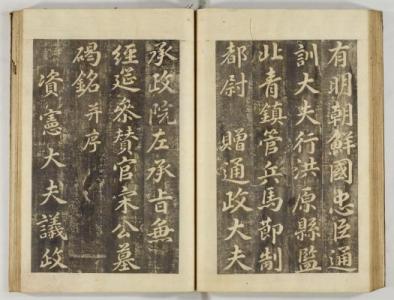 有明朝鮮國忠臣通
訓大夫行洪原縣監
北青鎮管兵馬節制
都尉 贈通政大夫
承政院左承旨兼
經筵參贊官宋公墓
碣銘 并序
資憲大夫議政